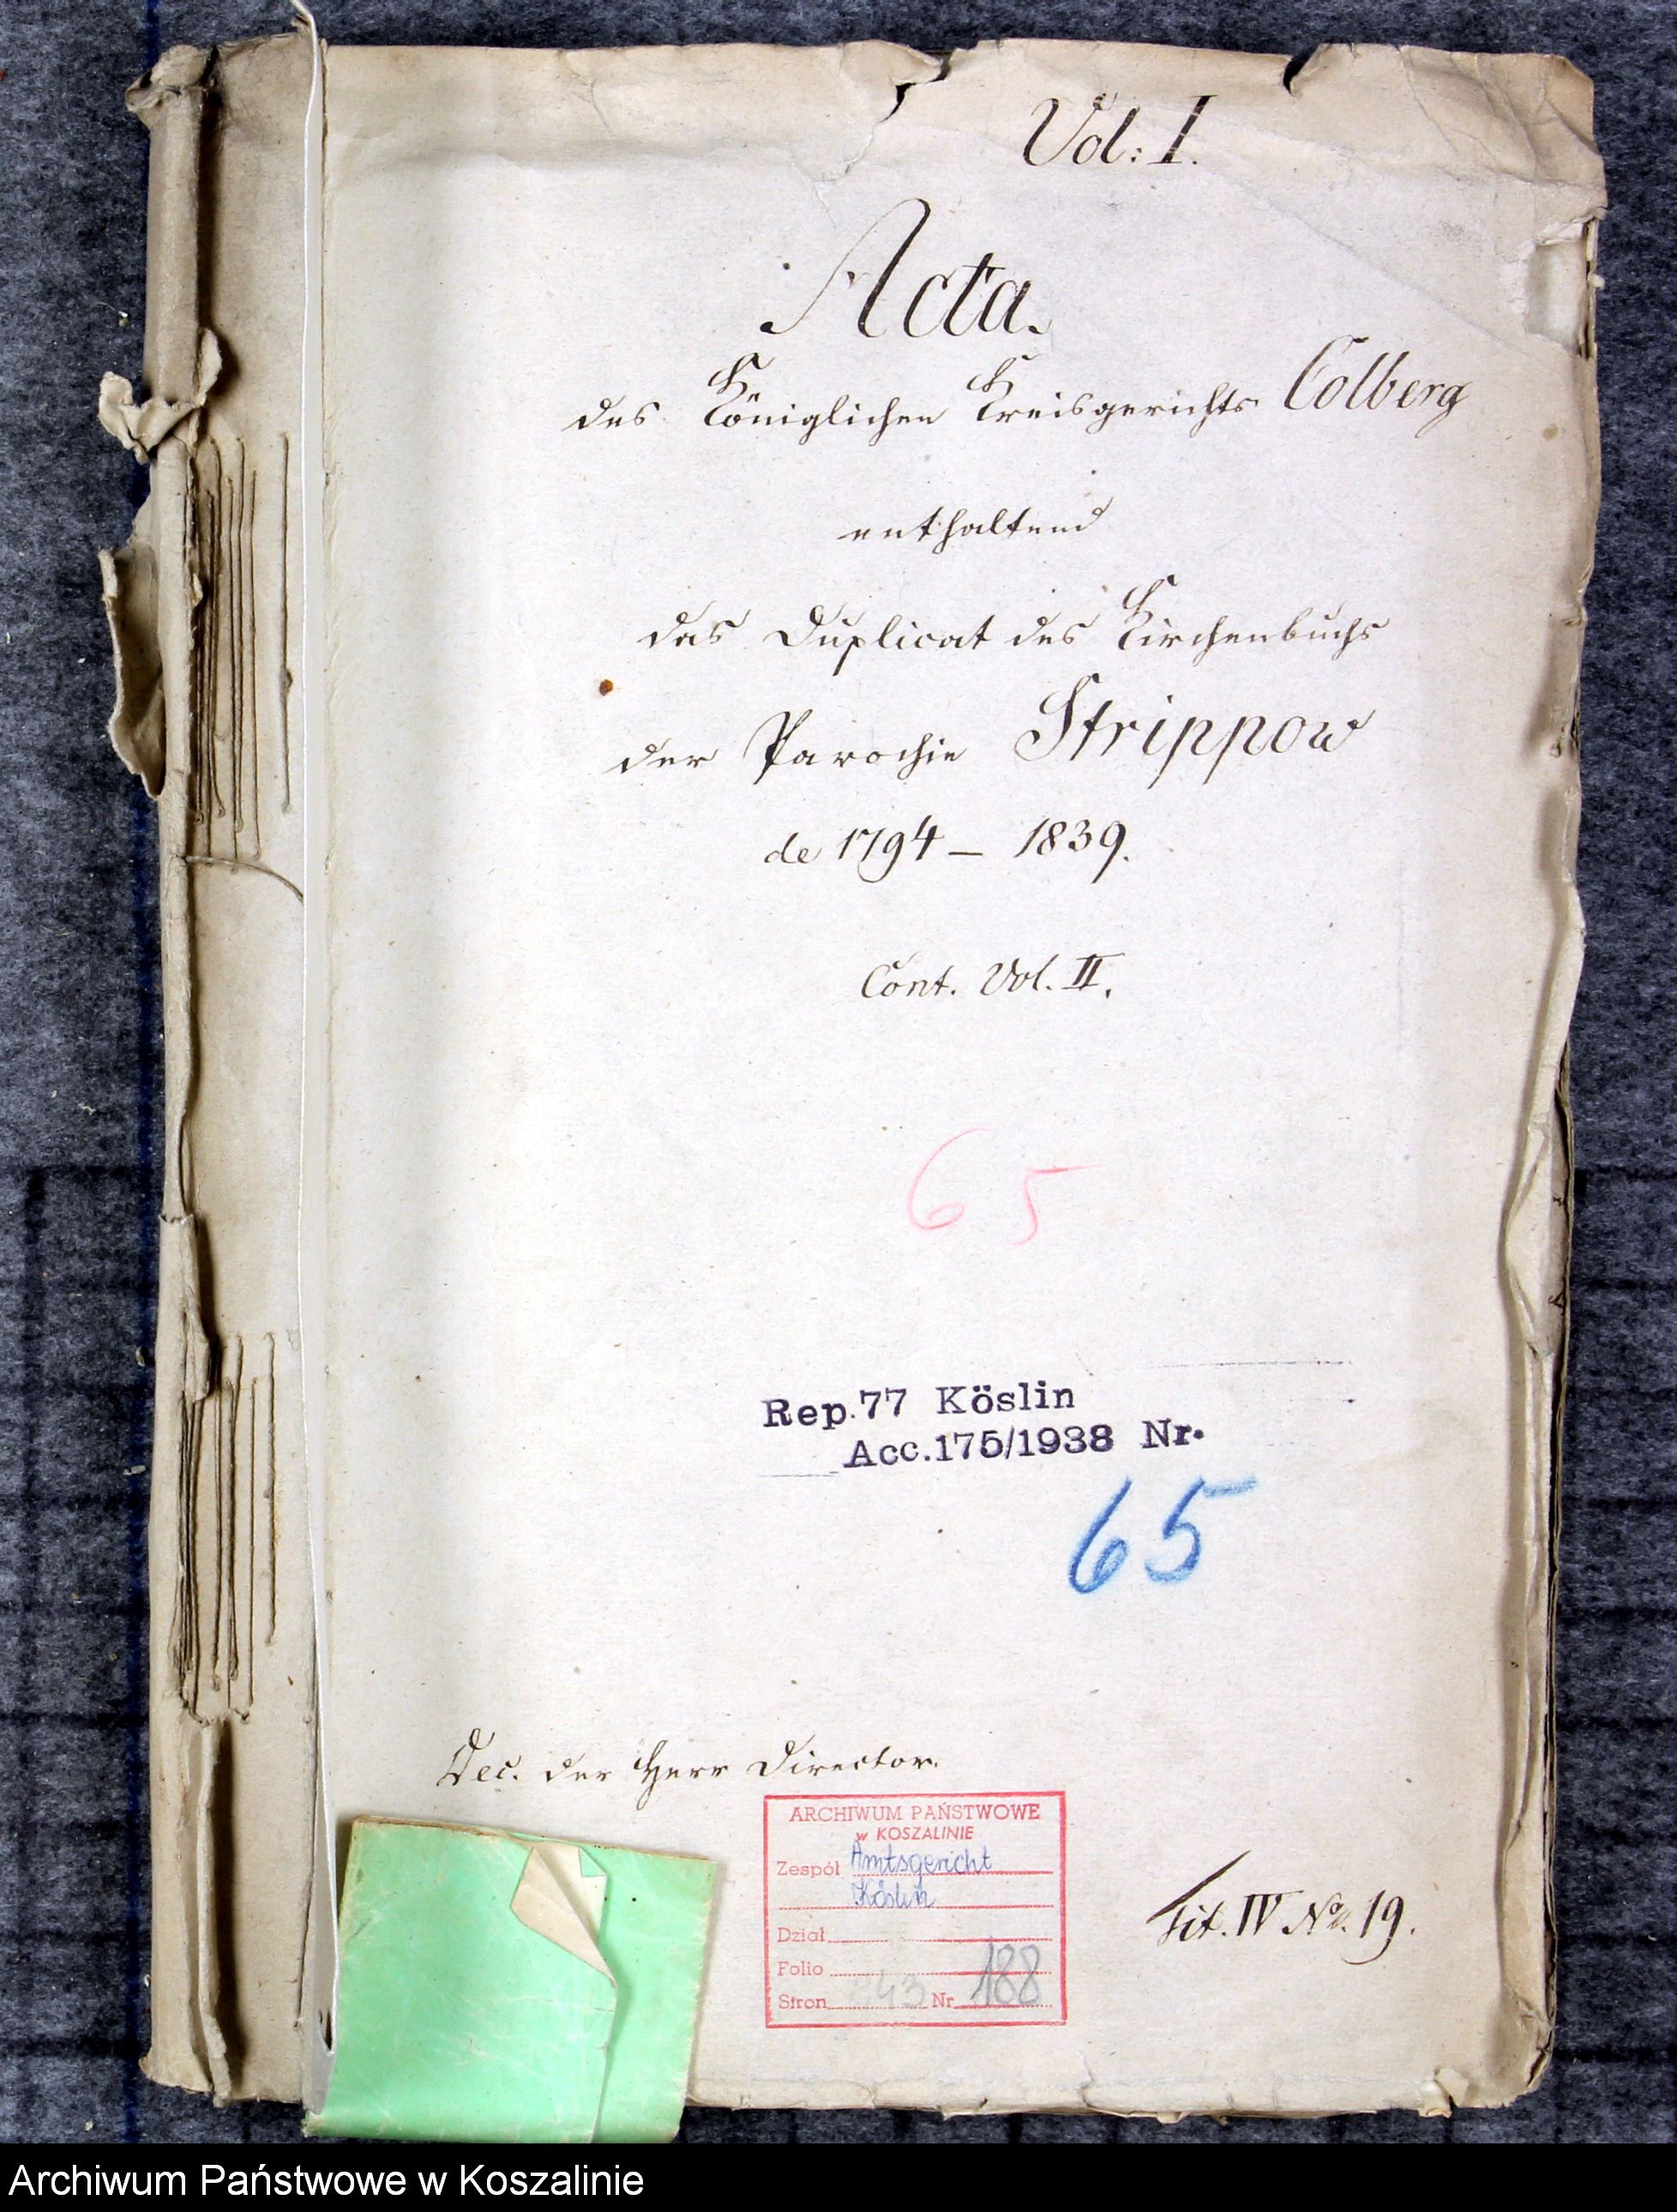 Vol: I.
Acta.
des Königlichen Kreisgerichts Colberg
enthaltend
das Duplicat des Kirchenbuchs
der Parochie Strippow
de 1794 – 1839.
Cont. Vol. II.
65
Rep.77 Köslin
Acc.175/1938 Nr.
65
Dec. der Herr Director.
ARCHIWUM PAŃSTWOWE
w KOSZALINIE
Zespół Amtsgericht
Köslin
Dział
Folio
Stron 243 Nr 188
Tit. IV No. 19.
Archiwum Państwowe w Koszalinie